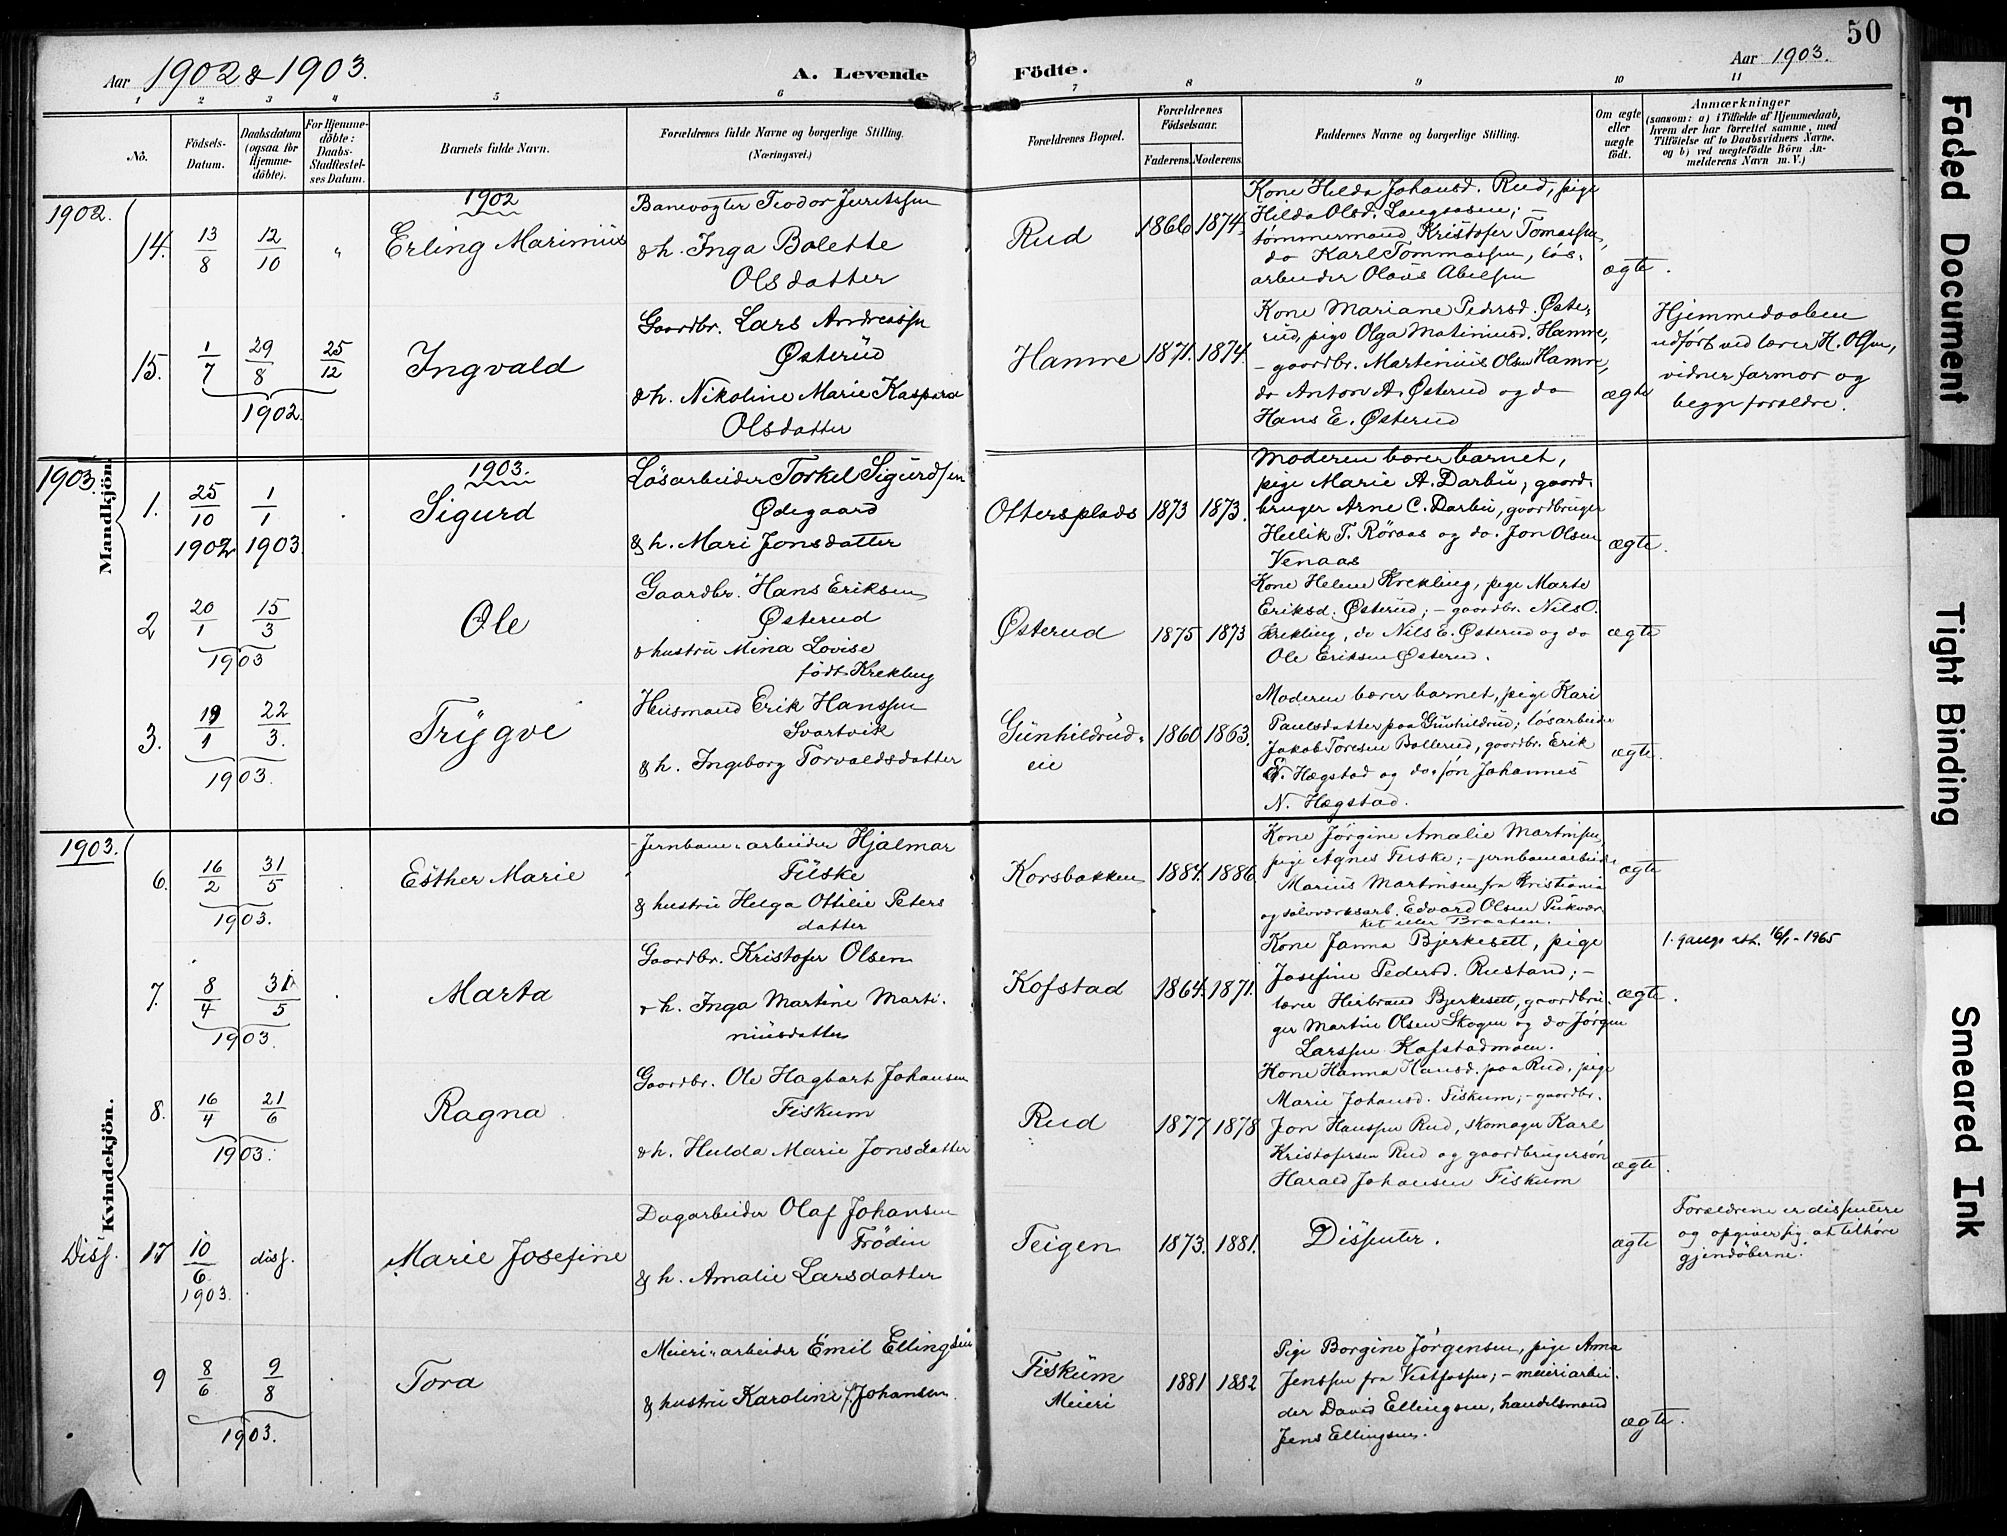 50
Aar 1902 & 1903.
A. Levende
Födte.
Aar 1903.
1 2 3 4 5 6 7 8 9 10 11
No.
Födsels-
Datum.
Daabsdatum
(ogsaa for
Hjemme-
döbte).
For Hjemme-
döbte:
Daabs-
Stadfæstel-
ses Datum.
Barnets fulde Navn.
Forældrenes fulde Navne og borgerlige Stilling.
(Næringsvei.)
Forældrenes Bopæl.
Forældrenes
Födselsaar.
Faderens. Moderens.
Faddernes Navne og borgerlige Stilling.
Om ægte
eller
uægte
födt.
Anmærkninger
(saasom: a) i Tilfælde af Hjemmedaab,
hvem der har forrettet samme, med
Tilföielse af to Daabsvidners Navne.
og b) ved uægtefödte Börn An-
melderens Navn m. V.)
1902.
1902
14.
13/8
12/10
"
Erling Marinius
Banevogter Teodor Juritssen
& h. Inga Bolette
Olsdatter
Rud
1866 1874.
Kone Hilda Johansd. Rud, pige
Hilda Olsd. Langaasen; –
tømmermand Kristofer Tomassen,
do Karl Tommassen, løs-
arbeider Olaus Abelsen
ægte.
15.
1/7
29/8
25/12
1902.
Ingvald
Gaardbr. Lars Andreassen
Østerud
& h. Nikoline Marie Kaspara
Olsdatter
Hamre
1871. 1874.
Kone Mariane Pedersd. Øste-
rud, pige Olga Matiniusd. Hamre,
– gaardbr. Martinius Olsen Hamre,
do Anton A. Østerud og do
Hans E. Østerud
ægte
Hjemmedaaben
udført ved lærer H. Olsen,
vidner farmor og
begge forældre.
1903.
Mandkjön.
1903.
1.
25/10
1902
1/1
1903.
Sigurd
Løsarbeider Torkel Sigurdsen
Ødegaard
& h. Mari Jonsdatter
Ottersplads
1873 1873.
Moderen bærer barnet,
pige Marie A. Darbu, gaard-
bruger Arne C. Darbu, gaardbruger
Heilik T. Røraas og do. Jon Olsen
Venaas
ægte.
2
20/1
15/3
1903
Ole
Gaardbr. Hans Eriksen
Østerud
& hustru Mina Lovise
født Krekling
Østerud
1875 1873
Kone Helene Krekling, pige Marte
Eriksd. Østerud; – gaardbr. Nils O.
Krekling, do Nils E. Østerud og do
Ole Eriksen Østerud.
ægte
3.
19/1
22/3.
1903.
Trygve
Husmand Erik Hanssen
Svartvik
& h. Ingeborg Torvaldsdatter
Gunhildrud-
eie
1860 1863.
Moderen bærer barnet, pige Kari
Paulsdatter paa Gunhildrud; løsarbeider
Jakob Toresen Bollerud, gaardbr. Erik
N. Hægstad og do. søn Johannes
N. Hægstad.
ægte.
1903.
Kvindekjön.
6.
16/2
31/5
1903.
Esther Marie
Jernbane-arbeider Hjalmar
Fiske
& hustru Helga Ottilie Peters
datter
Korsbakken
1884. 1886.
Kone Jørgine Amalie Martinsen,
pige Agnes Fiske; – jernbanearbeider
Marius Martinsen fra Kristiania
og sølvværksarb. Edvard Olsen Pukvær-
ket eller Braaten.
ægte
7.
8/4
31/5
1903.
Marta
Gaardbr. Kristofer Olsen
& h. Inga Martine Marti-
niusdatter
Kofstad
1864. 1871.
Kone Janna Bjerkesett, pige
Josefine Pedersd. Rustand; –
lærer Herbrand Bjerkesett, gaardbru-
ger Martin Olsen Skogen og do Jørgen
Larssen Kofstadmoen.
ægte.
1. gangs att. 16/1-1965
8.
16/4
21/6
1903.
Ragna
Gaardbr. Ole Hagbart Johansen
Fiskum
& h. Hulda Marie Jonsdatter
Rud
1877 1878
Kone Hanna Hansd. paa Rud, pige
Marie Johansd. Fiskum; – gaardbr.
Jon Hanssen Rud, skomager Karl
Kristofersen Rud og gaardbrugersøn
Harald Johansen Fiskum
ægte.
Diss.
17
10/6
1903.
diss.
Marie Josefine
Dagarbeider Olaf Johansen
Frödin
& h. Amalie Larsdatter
Teigen
1873. 1881.
Dissenter.
ægte
Forældrene er dissentere
og opgiver sig at tilhøre
gjendöberne.
9
8/6
9/8
1903.
Tora
Meieri-arbeider Emil Ellingsen
& hustru Karoline f. Johansen.
Fiskum
Meieri
1881 1882
Pige Borgine Jørgensen, pige Anna
Jenssen fra Vestfossen; – meieriarbei-
der David Ellingsen, handelsmand
Jens Ellingsen.
ægte.
Faded Document
Tight Binding
Smeared Ink